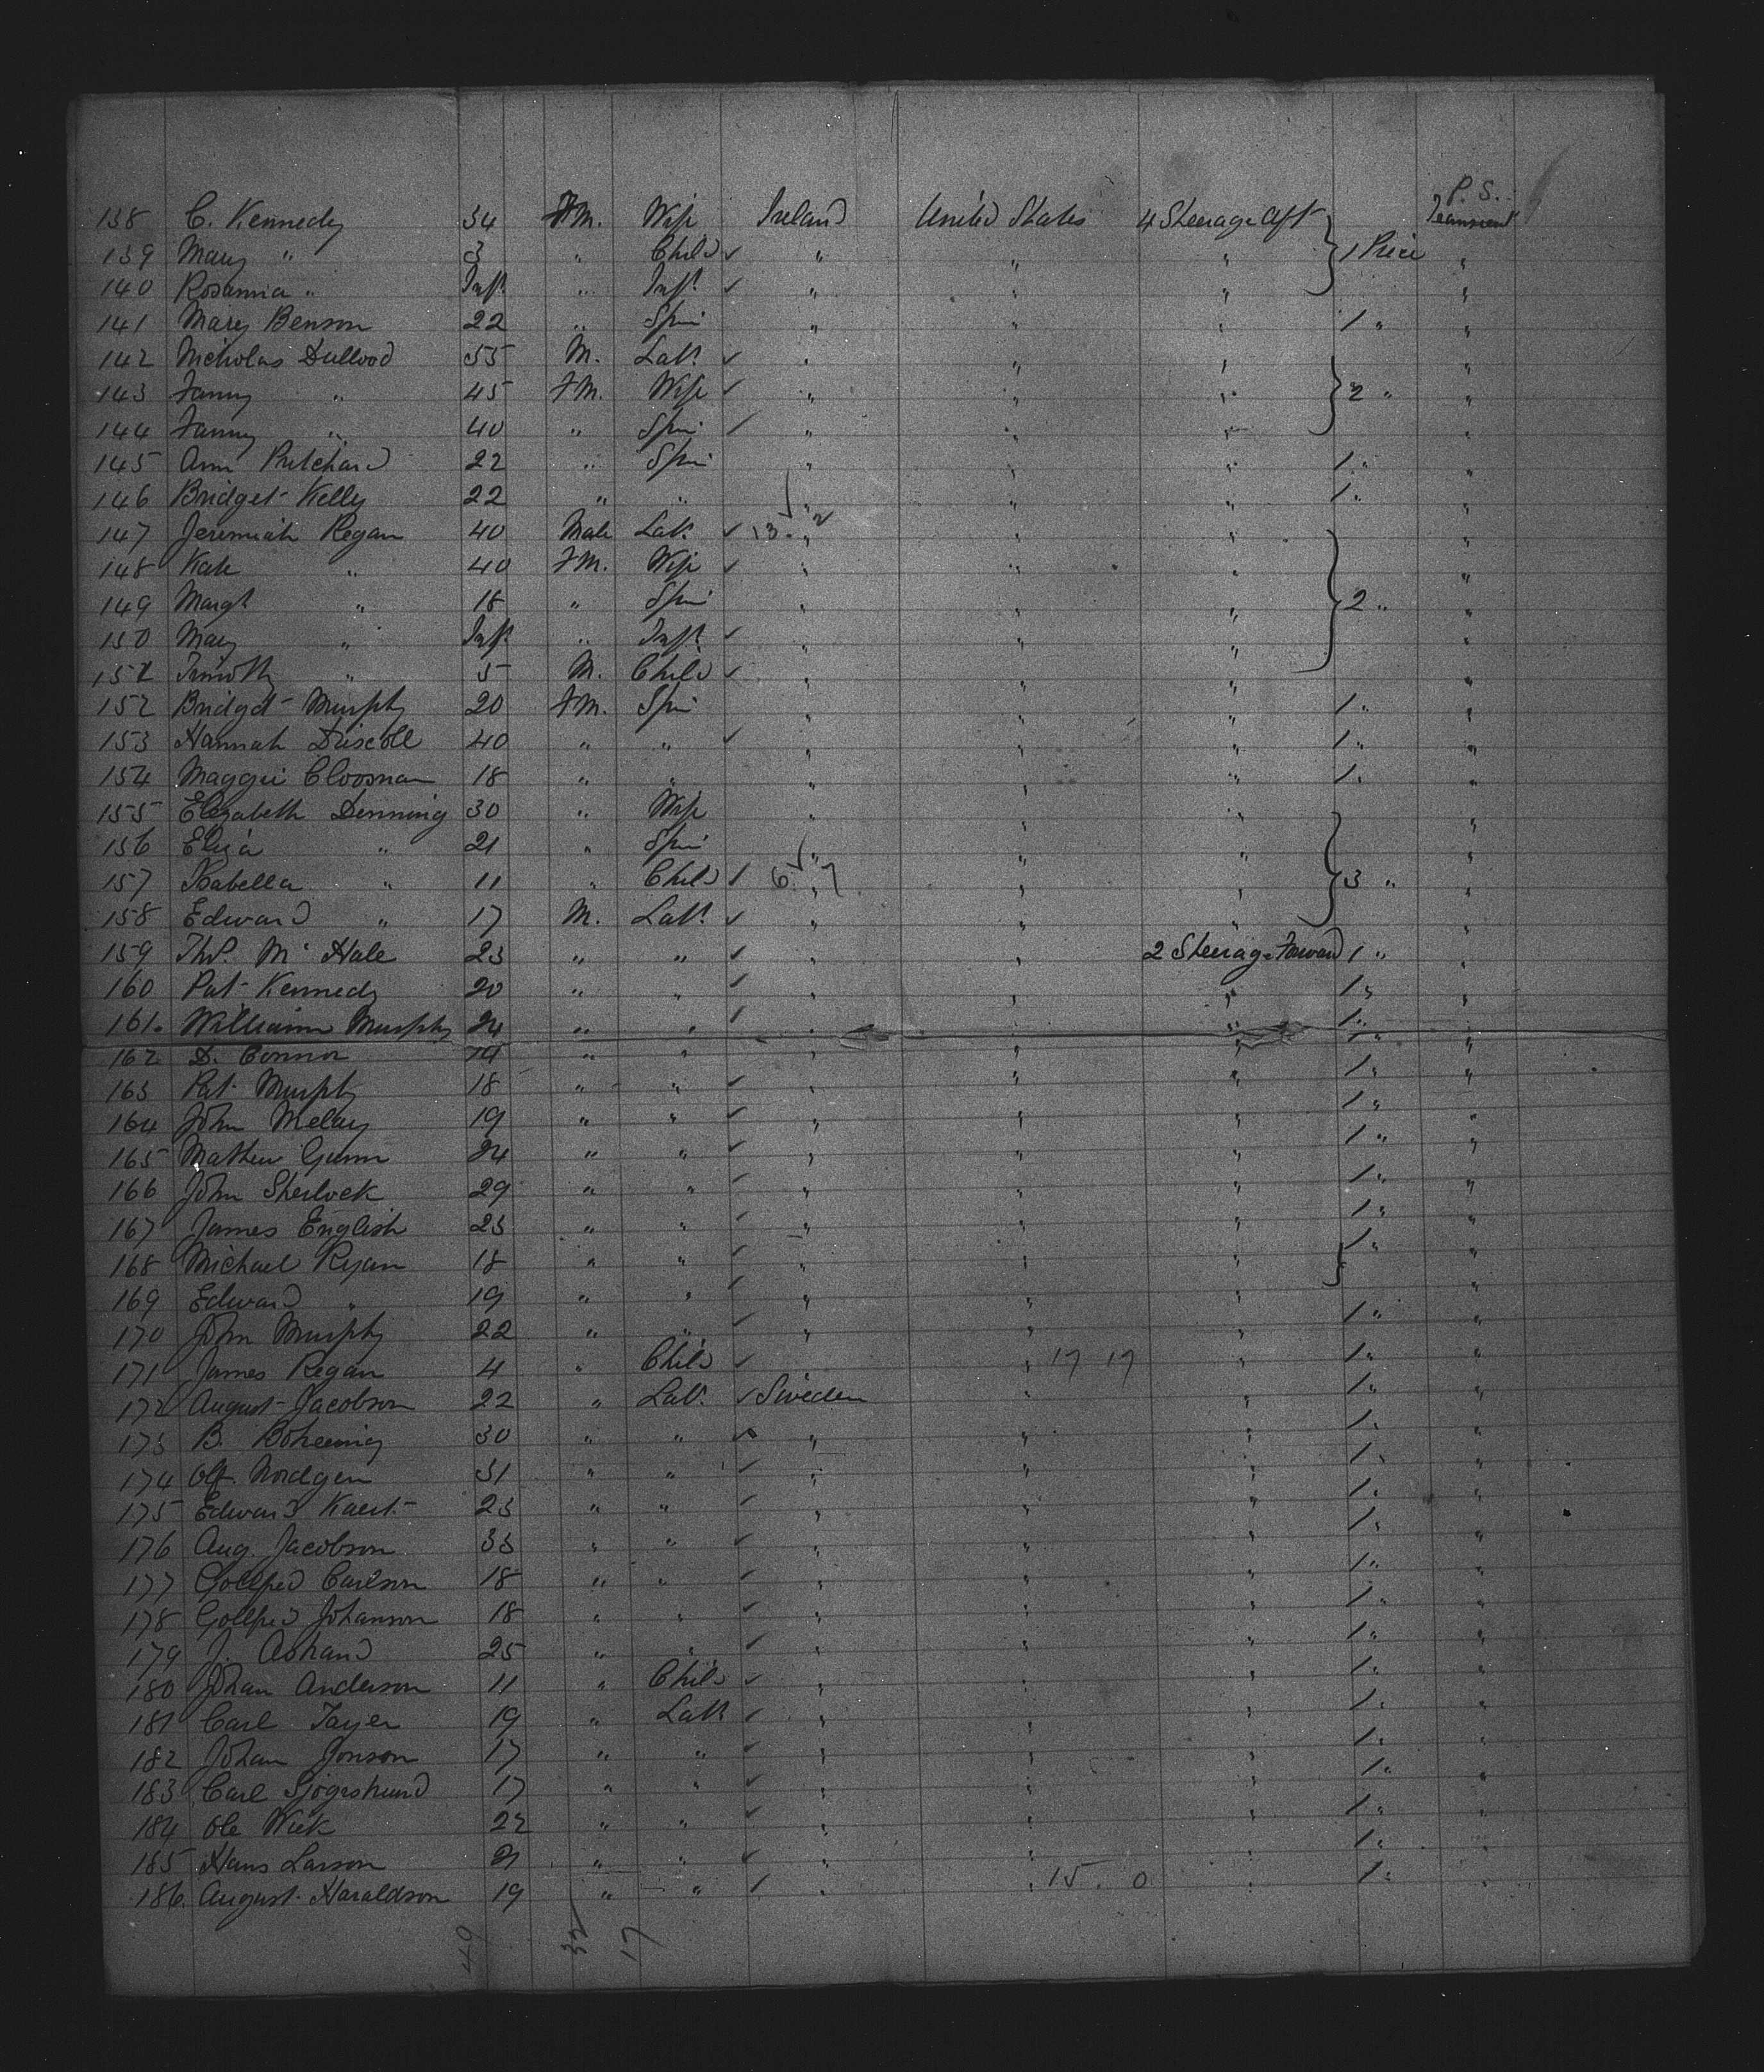 P. S.
138 C. Kennedy 34 FM. Wife Ireland United States 4 Steerage Aft Transient
139 Mary " 3 " Child ✓ " " " 1 Piece "
140 Rosanna " Inft " Inft ✓ " " " "
141 Mary Benson 22 " Spin " " " 1 " "
142 Nicholas 55 M. Labr ✓ " " " "
143 Fanny " 45 FM. Wife ✓ " " " 2 " "
144 Fanny " 40 " Spin ✓ " " " "
145 Ann Pritchard 22 " Spin " " " 1 " "
146 Bridget Kelly 22 " " " " " 1 " "
147 Jeremiah Regan 40 Male Labr ✓ 13. 2 " " " "
148 Kate " 40 FM. Wife ✓ " " " "
149 Margt " 18 " Spin " " " 2 " "
150 Mary " Inft " Inft ✓ " " " "
151 Timothy " 5 M. Child ✓ " " " "
152 Bridget Murphy 20 FM. Spin " " " 1 " "
153 Hannah Driscoll 40 " " ✓ " " " 1 " "
154 Maggie 18 " " " " " 1 " "
155 Elizabeth Denning 30 " Wife " " " "
156 Eliza " 21 " Spin " " " "
157 Isabella " 11 " Child ✓ 6. 7 " " " 3 " "
158 Edward " 17 M. Labr ✓ " " " "
159 Thos. McHale 23 " " ✓ " " 2 Steerage Forward 1 " "
160 Pat Kennedy 20 " " ✓ " " " 1 " "
161. William Murphy 24 " " ✓ " " " 1 " "
162 D. Connor " " " " " 1 " "
163 Pat Murphy 18 " " ✓ " " " 1 " "
164 John 19 " " ✓ " " " 1 " "
165 Mathew Gunn 24 " " ✓ " " " 1 " "
166 John Sherlock 29 " " ✓ " " " 1 " "
167 James English 23 " " ✓ " " " 1 " "
168 Michael Ryan 18 " " ✓ " " " 1 " "
169 Edward " 19 " " ✓ " " " "
170 John Murphy 22 " " ✓ " " " 1 " "
171 James Regan 4 " Child ✓ " 17 17 " 1 " "
172 August Jacobson 22 " Labr. ✓ Sweden " " 1 " "
173 B. 30 " " ✓ " " " 1 " "
174 Olf. Nordgen 31 " " ✓ " " " 1 " "
175 Edward 23 " " ✓ " " " 1 " "
176 Aug. Jacobson 33 " " ✓ " " " 1 " "
177 Gollfred Carlson 18 " " ✓ " " " 1 " "
178 Gollfred Johanson 18 " " ✓ " " " 1 " "
179 J. 25 " " ✓ " " " 1 " "
180 Johan Anderson 11 " Child ✓ " " " 1 " "
181 Carl Tayer 19 " Labr ✓ " " " 1 " "
182 Johan Jonson 17 " " ✓ " " " 1 " "
183 Carl 17 " " ✓ " " " 1 " "
184 Ole Wick 22 " " ✓ " " " 1 " "
185 Hans Larson 21 " " ✓ " " " 1 " "
186. August Haraldson 19 " " ✓ " 15. 0 " 1 " "
49 32 17